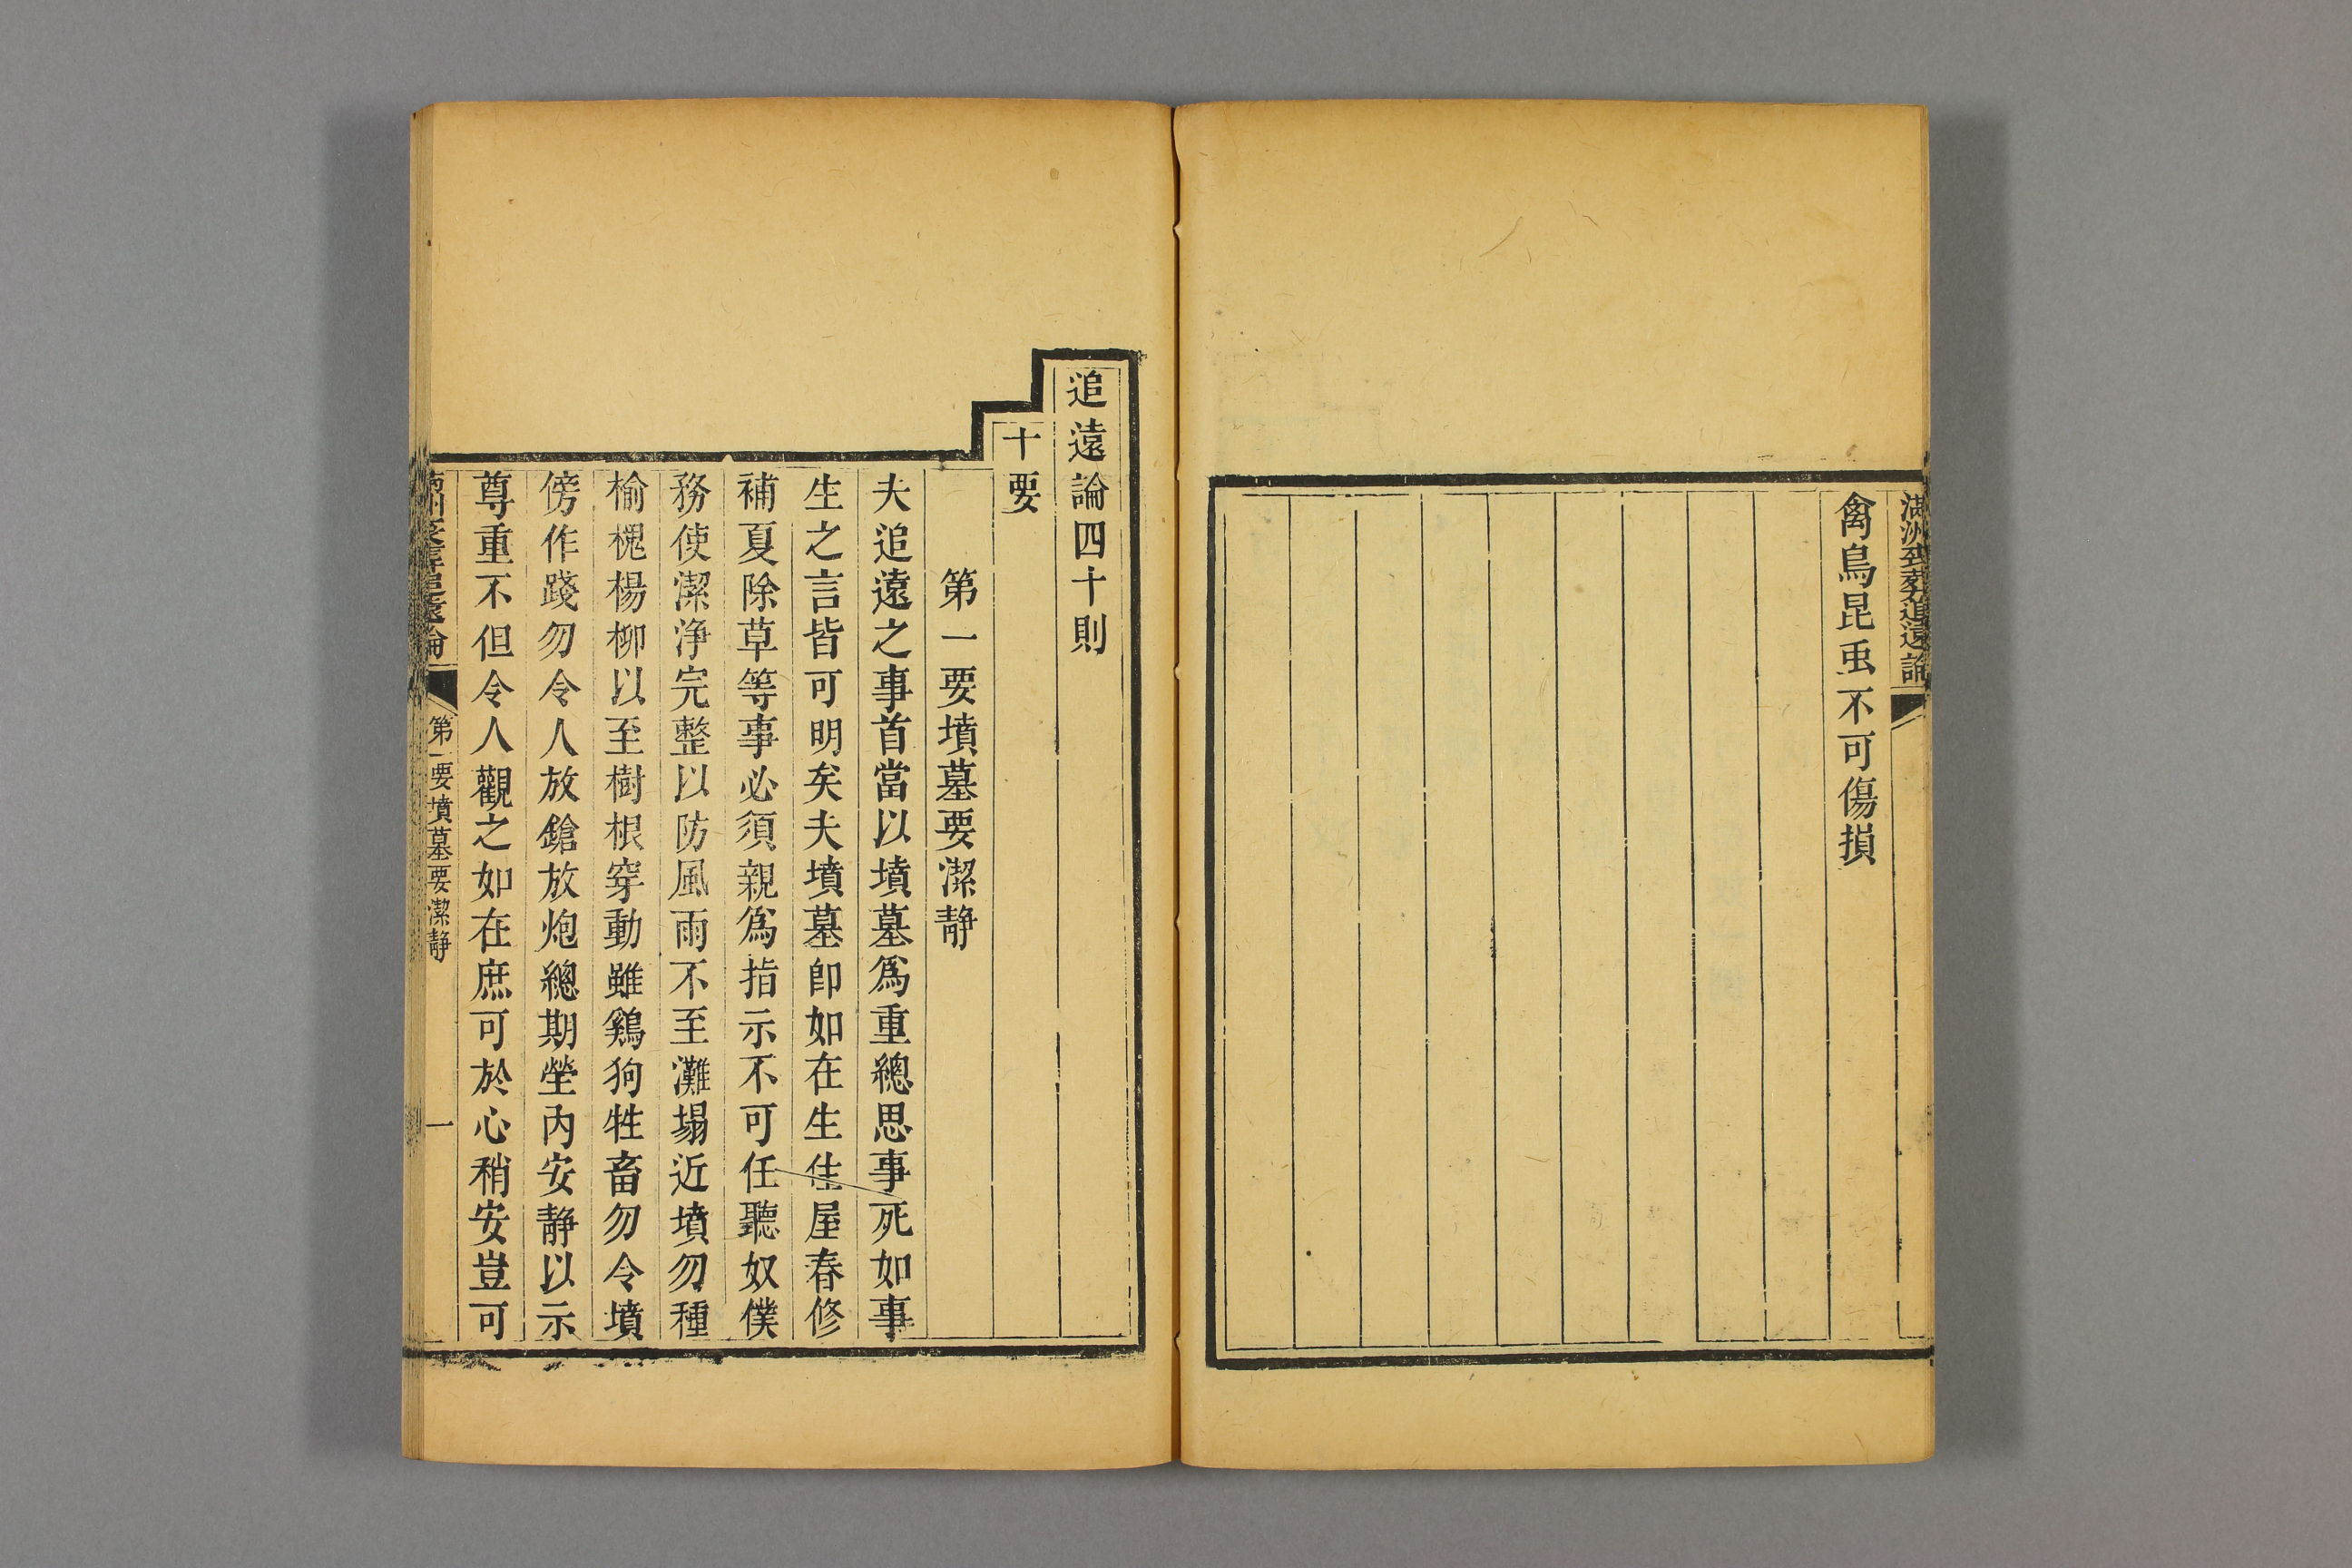 滿洲喪葬追遠論
禽鳥昆虫不可傷損
追遠論四十則
十要
第一要墳墓要潔静
夫追遠之事首當以墳墓爲重總思事死如事
生之言皆可明矣夫墳墓卽如在生住屋春修
補夏除草等事必須親爲指示不可任聽奴僕
務使潔淨完整以防風雨不至灘塌近墳勿種
榆槐楊柳以至樹根穿動雖鷄狗牲畜勿令墳
傍作踐勿令人放鎗放炮總期塋內安静以示
尊重不但令人觀之如在庶可於心稍安豈可
追遠論 第一要墳墓要潔静 一